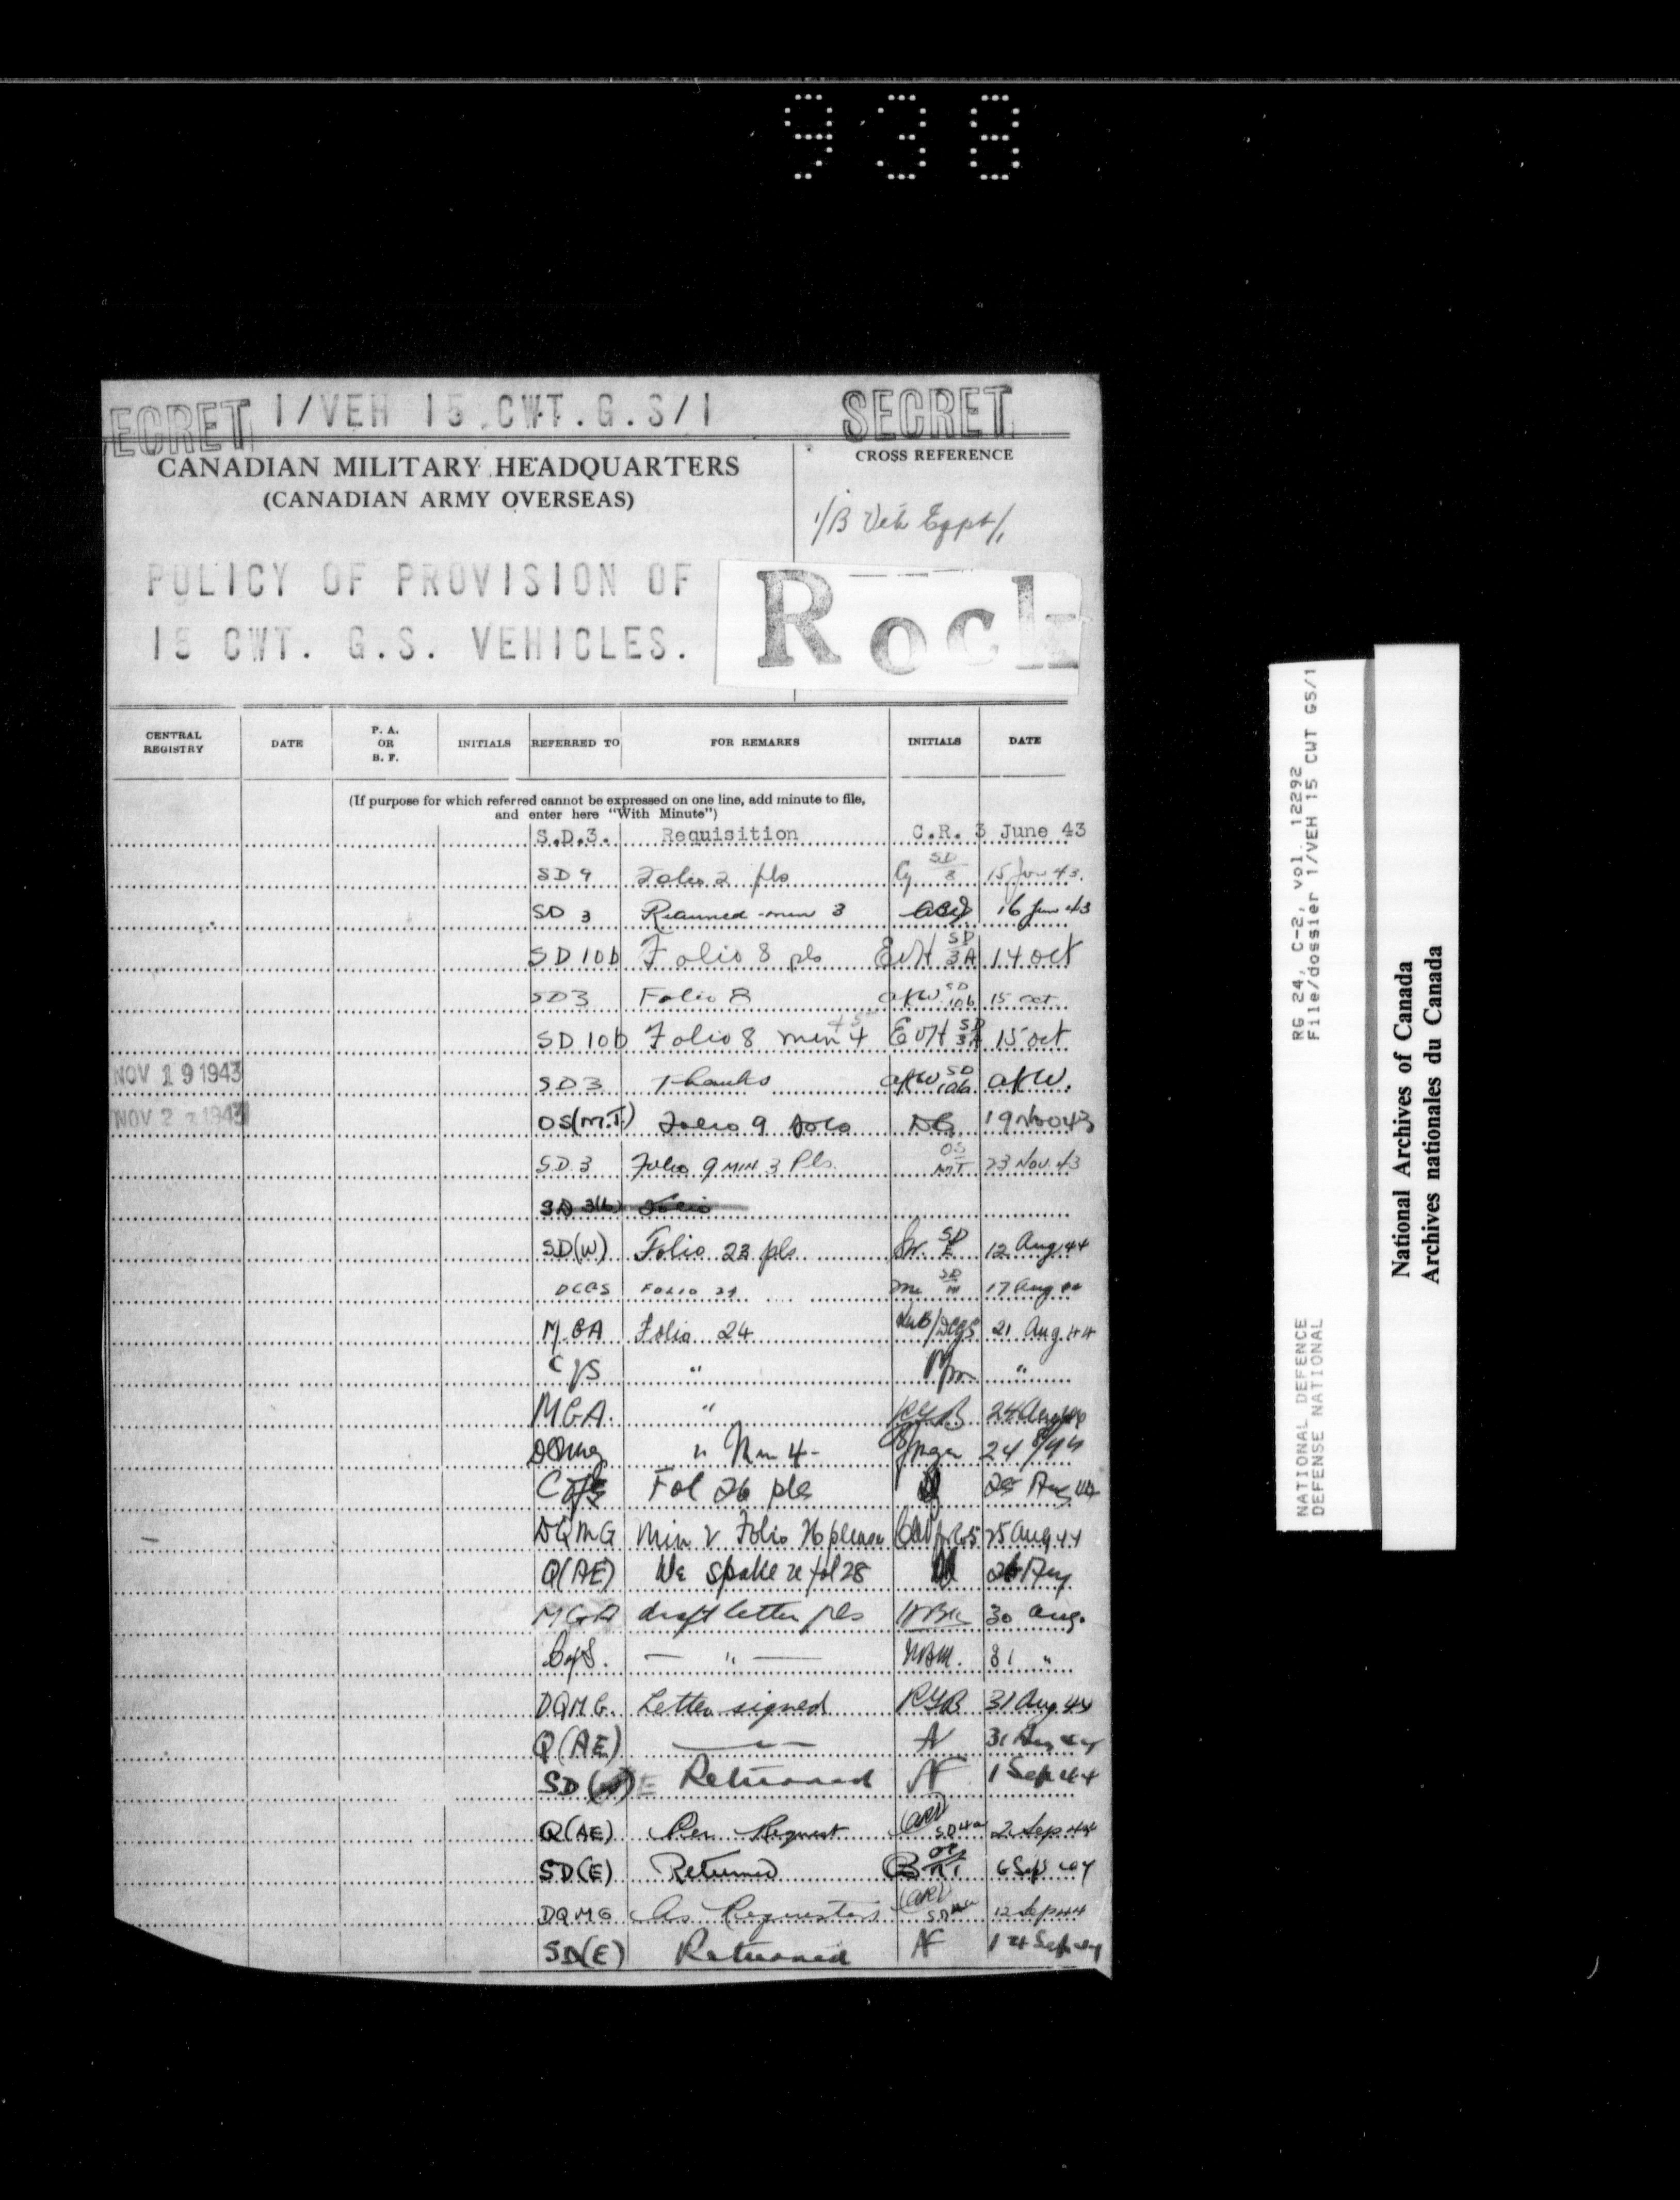 938
ECRET 1/VEH 15 CWT.G.S/1 SECRET
CANADIAN MILITARY HEADQUARTERS
(CANADIAN ARMY OVERSEAS)
CROSS REFERENCE
1/B Veh Eqpt/1
POLICY OF PROVISION OF
15 CWT. G.S. VEHICLES.
Rock
CENTRAL REGISTRY DATE P. A. OR B. F. INITIALS REFERRED TO FOR REMARKS INITIALS DATE
(If purpose for which referred cannot be expressed on one line, add minute to file,
and enter here "With Minute")
S.D.3. Requisition C.R. 3 June 43
SD 4 Folio 2 pls SD 3 15 Jun 43.
SD 3 Returned min 3 16 Jun 43
SD 10b Folio 8 pls EVH SD 3A 14 oct
SD3 Folio 8 AKW SD 10b 15 oct
SD 10b Folio 8 min 4 EVH SD 3A 15 oct
NOV 19 1943 SD3 Thanks AKW SD 10b AKW.
NOV 23 1943 OS(M.T) Folio 9 19 Nov 43
S.D.3 Folio 9 MIN 3 Pls. OS MT 23 Nov. 43
SD 3(b) Folio
SD(W) Folio 23 pls SD E 12 Aug 44
DCGS FOLIO 24 SD W 17 Aug 44
M.G.A Folio 24 /DCGS 21 Aug 44
CofS " "
M.G.A. " RYB 24 Aug 44
DQMG " Min 4 24/8/44
CofS Fol 26 pls 25 Aug 44
DQMG Min 2 Folio 26 please 25 Aug 44
Q(AE) We spoke re fol 28 26 Aug
MGA draft letter pls 30 Aug.
CofS. — " — 31 "
DQMG. Letter signed RYB 31 Aug 44
Q(AE) — " — 31 Aug 44
SD(W)E Returned AF 1 Sep 44
Q(AE) Per Request SD4a 2 Sep 44
SD(E) Returned 6 Sep 44
DQMG As Requested SD4a 12 Sep 44
SD(E) Returned AF 14 Sep 44
RG 24, C-2, vol. 12292
File/dossier 1/VEH 15 CWT GS/1
NATIONAL DEFENCE
DEFENSE NATIONAL
National Archives of Canada
Archives nationales du Canada